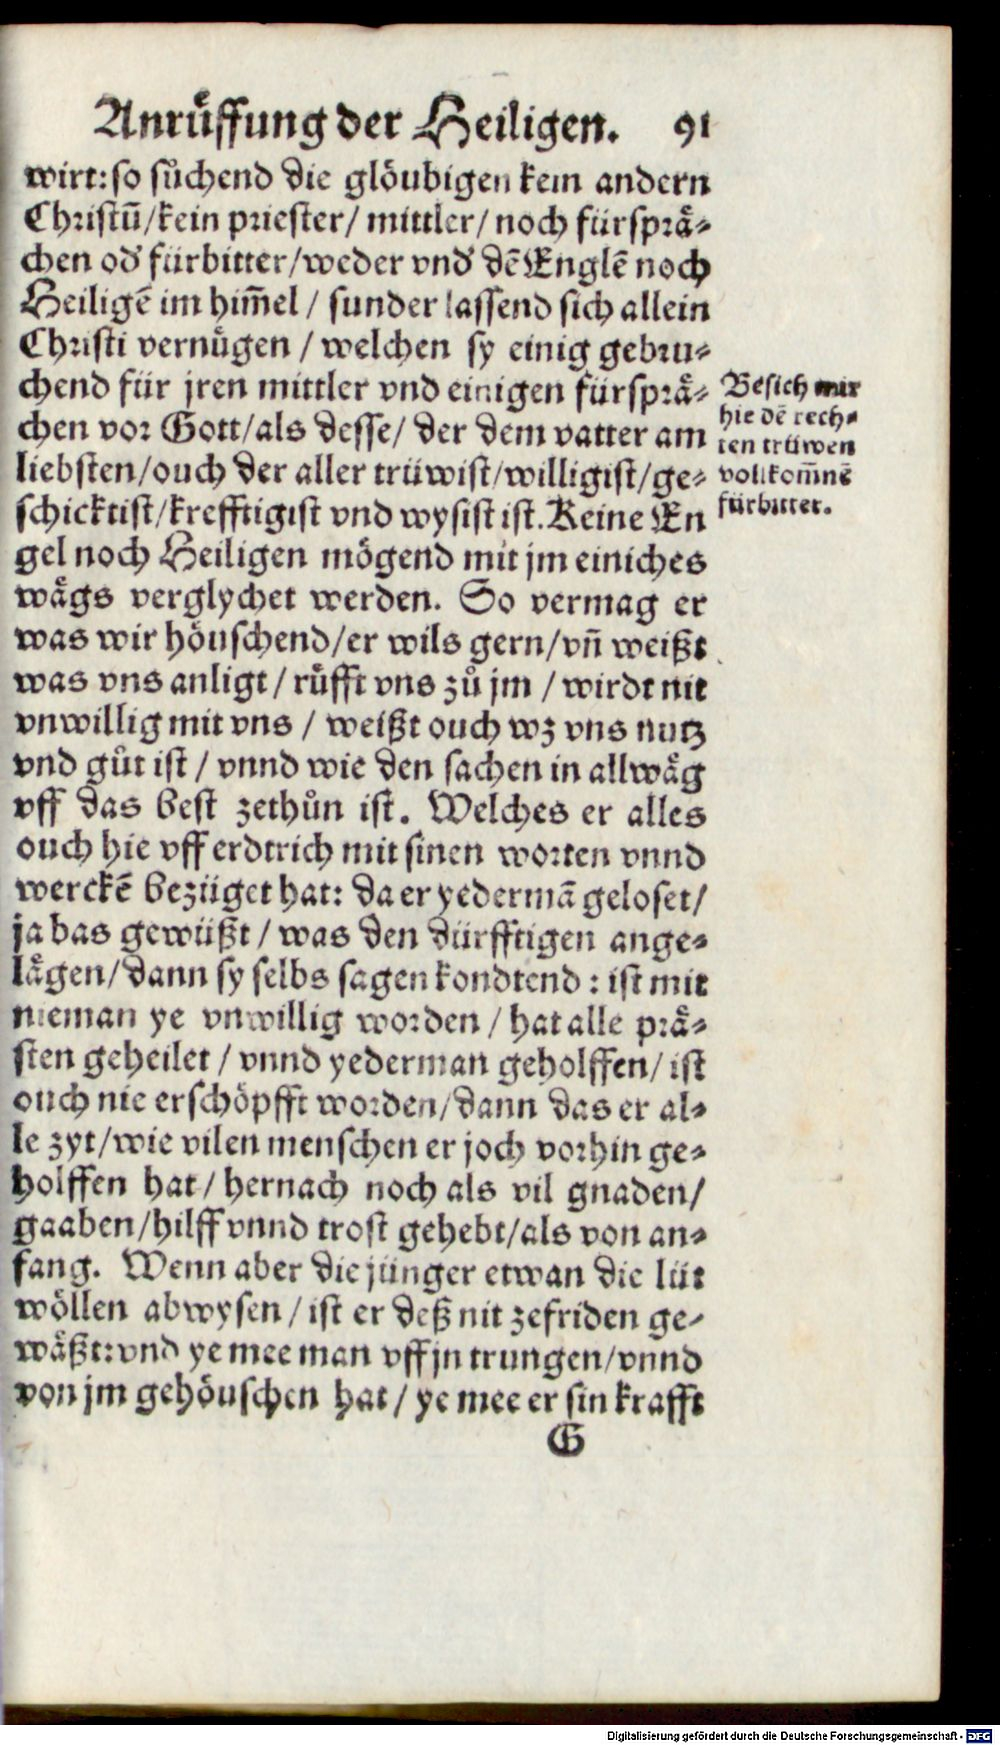 Anruͤffung der Heiligen. 91
wirt: so suͦchend die gloͤubigen kein andern
Christū/kein priester/ mittler/ noch fürspraͤ⸗
chen od' fürbitter/weder vnd' dē Englē noch
Heiligē im him̃el / sunder lassend sich allein
Christi vernuͤgen / welchen sy einig gebru⸗
chend für jren mittler vnd einigen fürspraͤ⸗
chen vor Gott/als desse/ der dem vatter am
liebsten/ouch der aller trüwist/willigist/ge⸗
schicktist/krefftigist vnd wysist ist. Keine En
gel noch Heiligen moͤgend mit jm einiches
waͤgs verglychet werden. So vermag er
was wir hoͤuschend/er wils gern/vn̄ weißt
was vns anligt / ruͤfft vns zuͦ jm / wirdt nit
vnwillig mit vns / weißt ouch wz vns nutz
vnd guͦt ist / vnnd wie den sachen in allwaͤg
vff das best zethuͦn ist. Welches er alles
ouch hie vff erdtrich mit sinen worten vnnd
werckē bezüget hat: da er yedermā geloset/
ja bas gewüßt / was den dürfftigen ange⸗
laͤgen/dann sy selbs sagen kondtend : ist mit
nieman ye vnwillig worden / hat alle praͤ⸗
sten geheilet / vnnd yederman geholffen/ ist
ouch nie erschoͤpfft worden/dann das er al⸗
le zyt/wie vilen menschen er joch vorhin ge⸗
holffen hat / hernach noch als vil gnaden/
gaaben/hilff vnnd trost gehebt/als von an⸗
fang. Wenn aber die jünger etwan die lüt
woͤllen abwysen / ist er deß nit zefriden ge⸗
waͤßt: vnd ye mee man vff jn trungen/vnnd
von jm gehoͤuschen hat / ye mee er sin krafft
G
Besich mir
hie dē rech⸗
ten trüwen
vollkom̃nē
fürbitter.
Digitalisierung gefördert durch die Deutsche Forschungsgemeinschaft - DFG